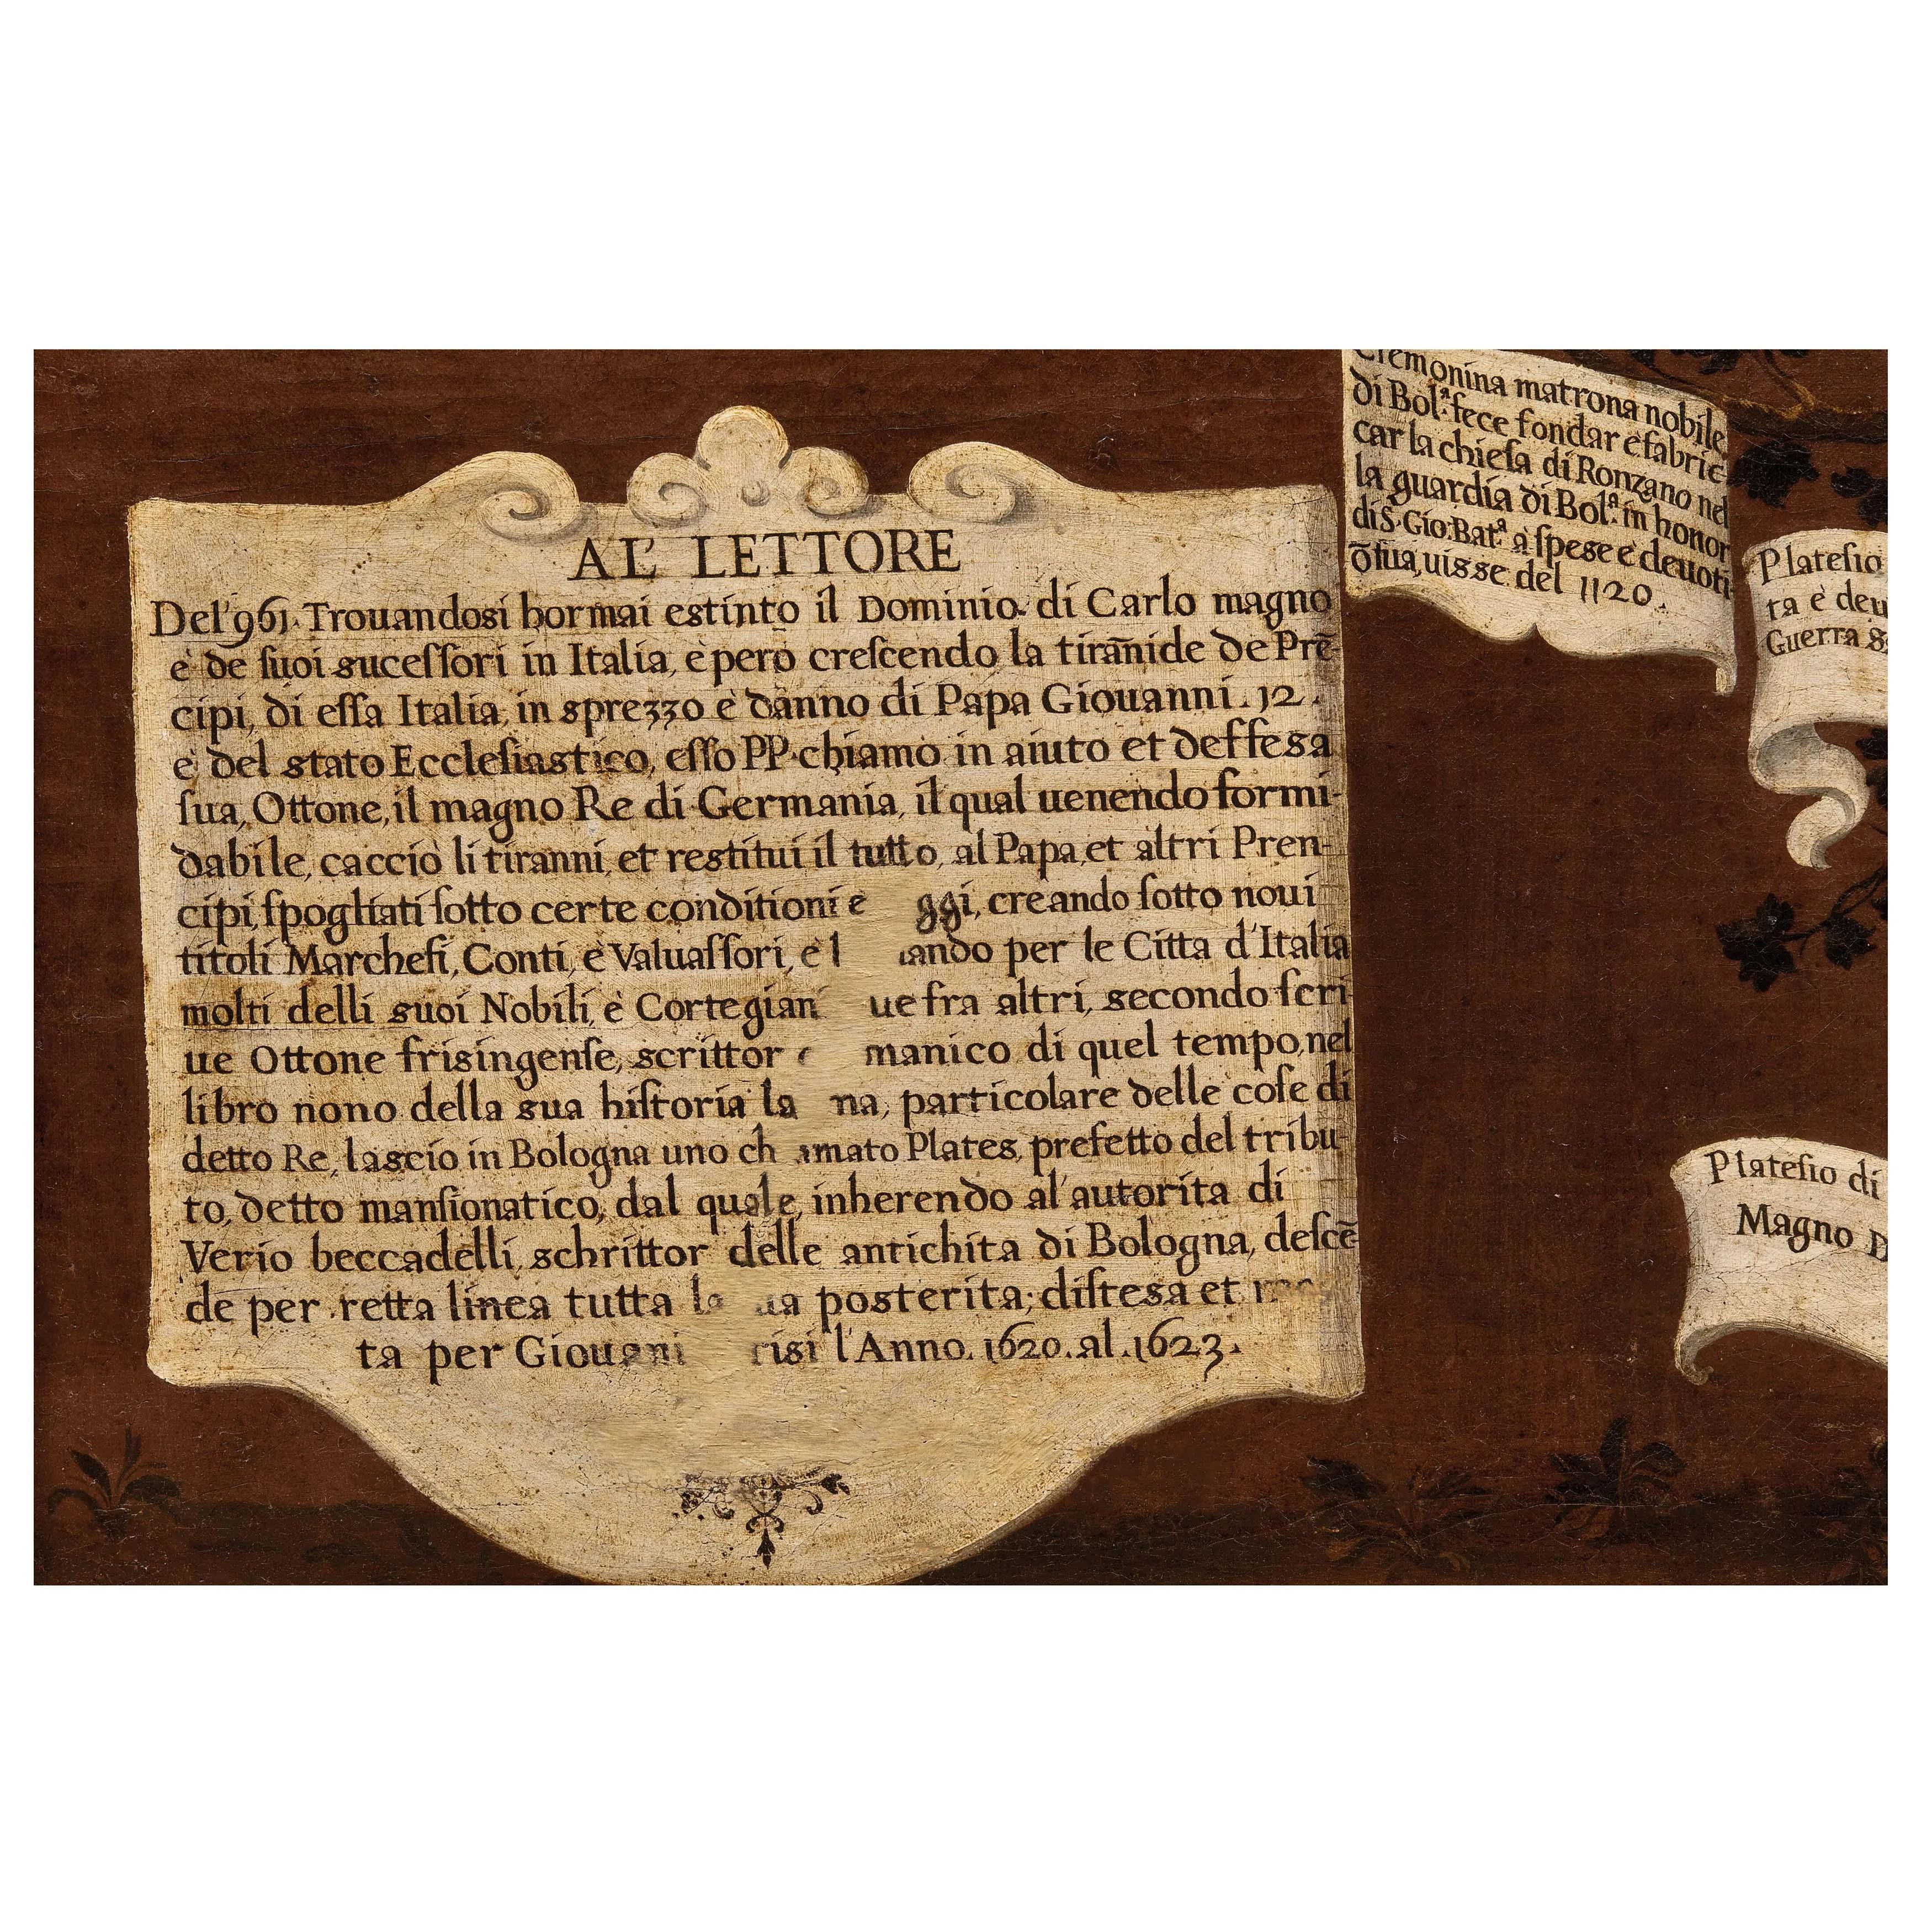 AL' LETTORE
Del' 961. Trouandosi hormai estinto il Dominio di Carlo magno
è de ſuoi suceſſori in Italia, è però creſcendo la tirāñide de Prē-
cipi, di eſſa Italia, in sprezzo è danno di Papa Giouanni. 12.
è del stato Eccleſiastico, eſſo PP. chiamo in aiuto et deffesa
ſua, Ottone, il magno Re di Germania, il qual uenendo formi-
dabile, cacciò li tiranni, et restitui il tutto, al Papa, et altri Pren-
cipi, ſpogliati ſotto certe conditioni e ggi, creando ſotto noui
titoli Marcheſi, Conti, è Valuaſſori, è l ando per le Citta d'Italia
molti delli suoi Nobili, è Cortegian ue fra altri, secondo ſcri-
ue Ottone friſingenſe, scrittor manico di quel tempo, nel
libro nono della sua hiſtoria la na, particolare delle coſe di
detto Re, lascio in Bologna uno ch amato Plates, prefetto del tribu-
to, detto manſionatico, dal quale, inherendo al'autorita di
Verio beccadelli, schrittor delle antichita di Bologna, deſcē-
de per retta linea tutta la ua posterita; diſtesa et
ta per Giouani risi l'Anno. 1620. al. 1623.
Cremonina matrona nobile
di Bol.ª fece fondar e fabric-
car la chieſa di Ronzano nel
la guardia di Bol.ª in honor
di S. Gio: Bat.ª à ſpese è deuoti-
ō ſua, uisse del 1120.
Plateſio
ta è deu
Guerra
Plateſio di
Magno